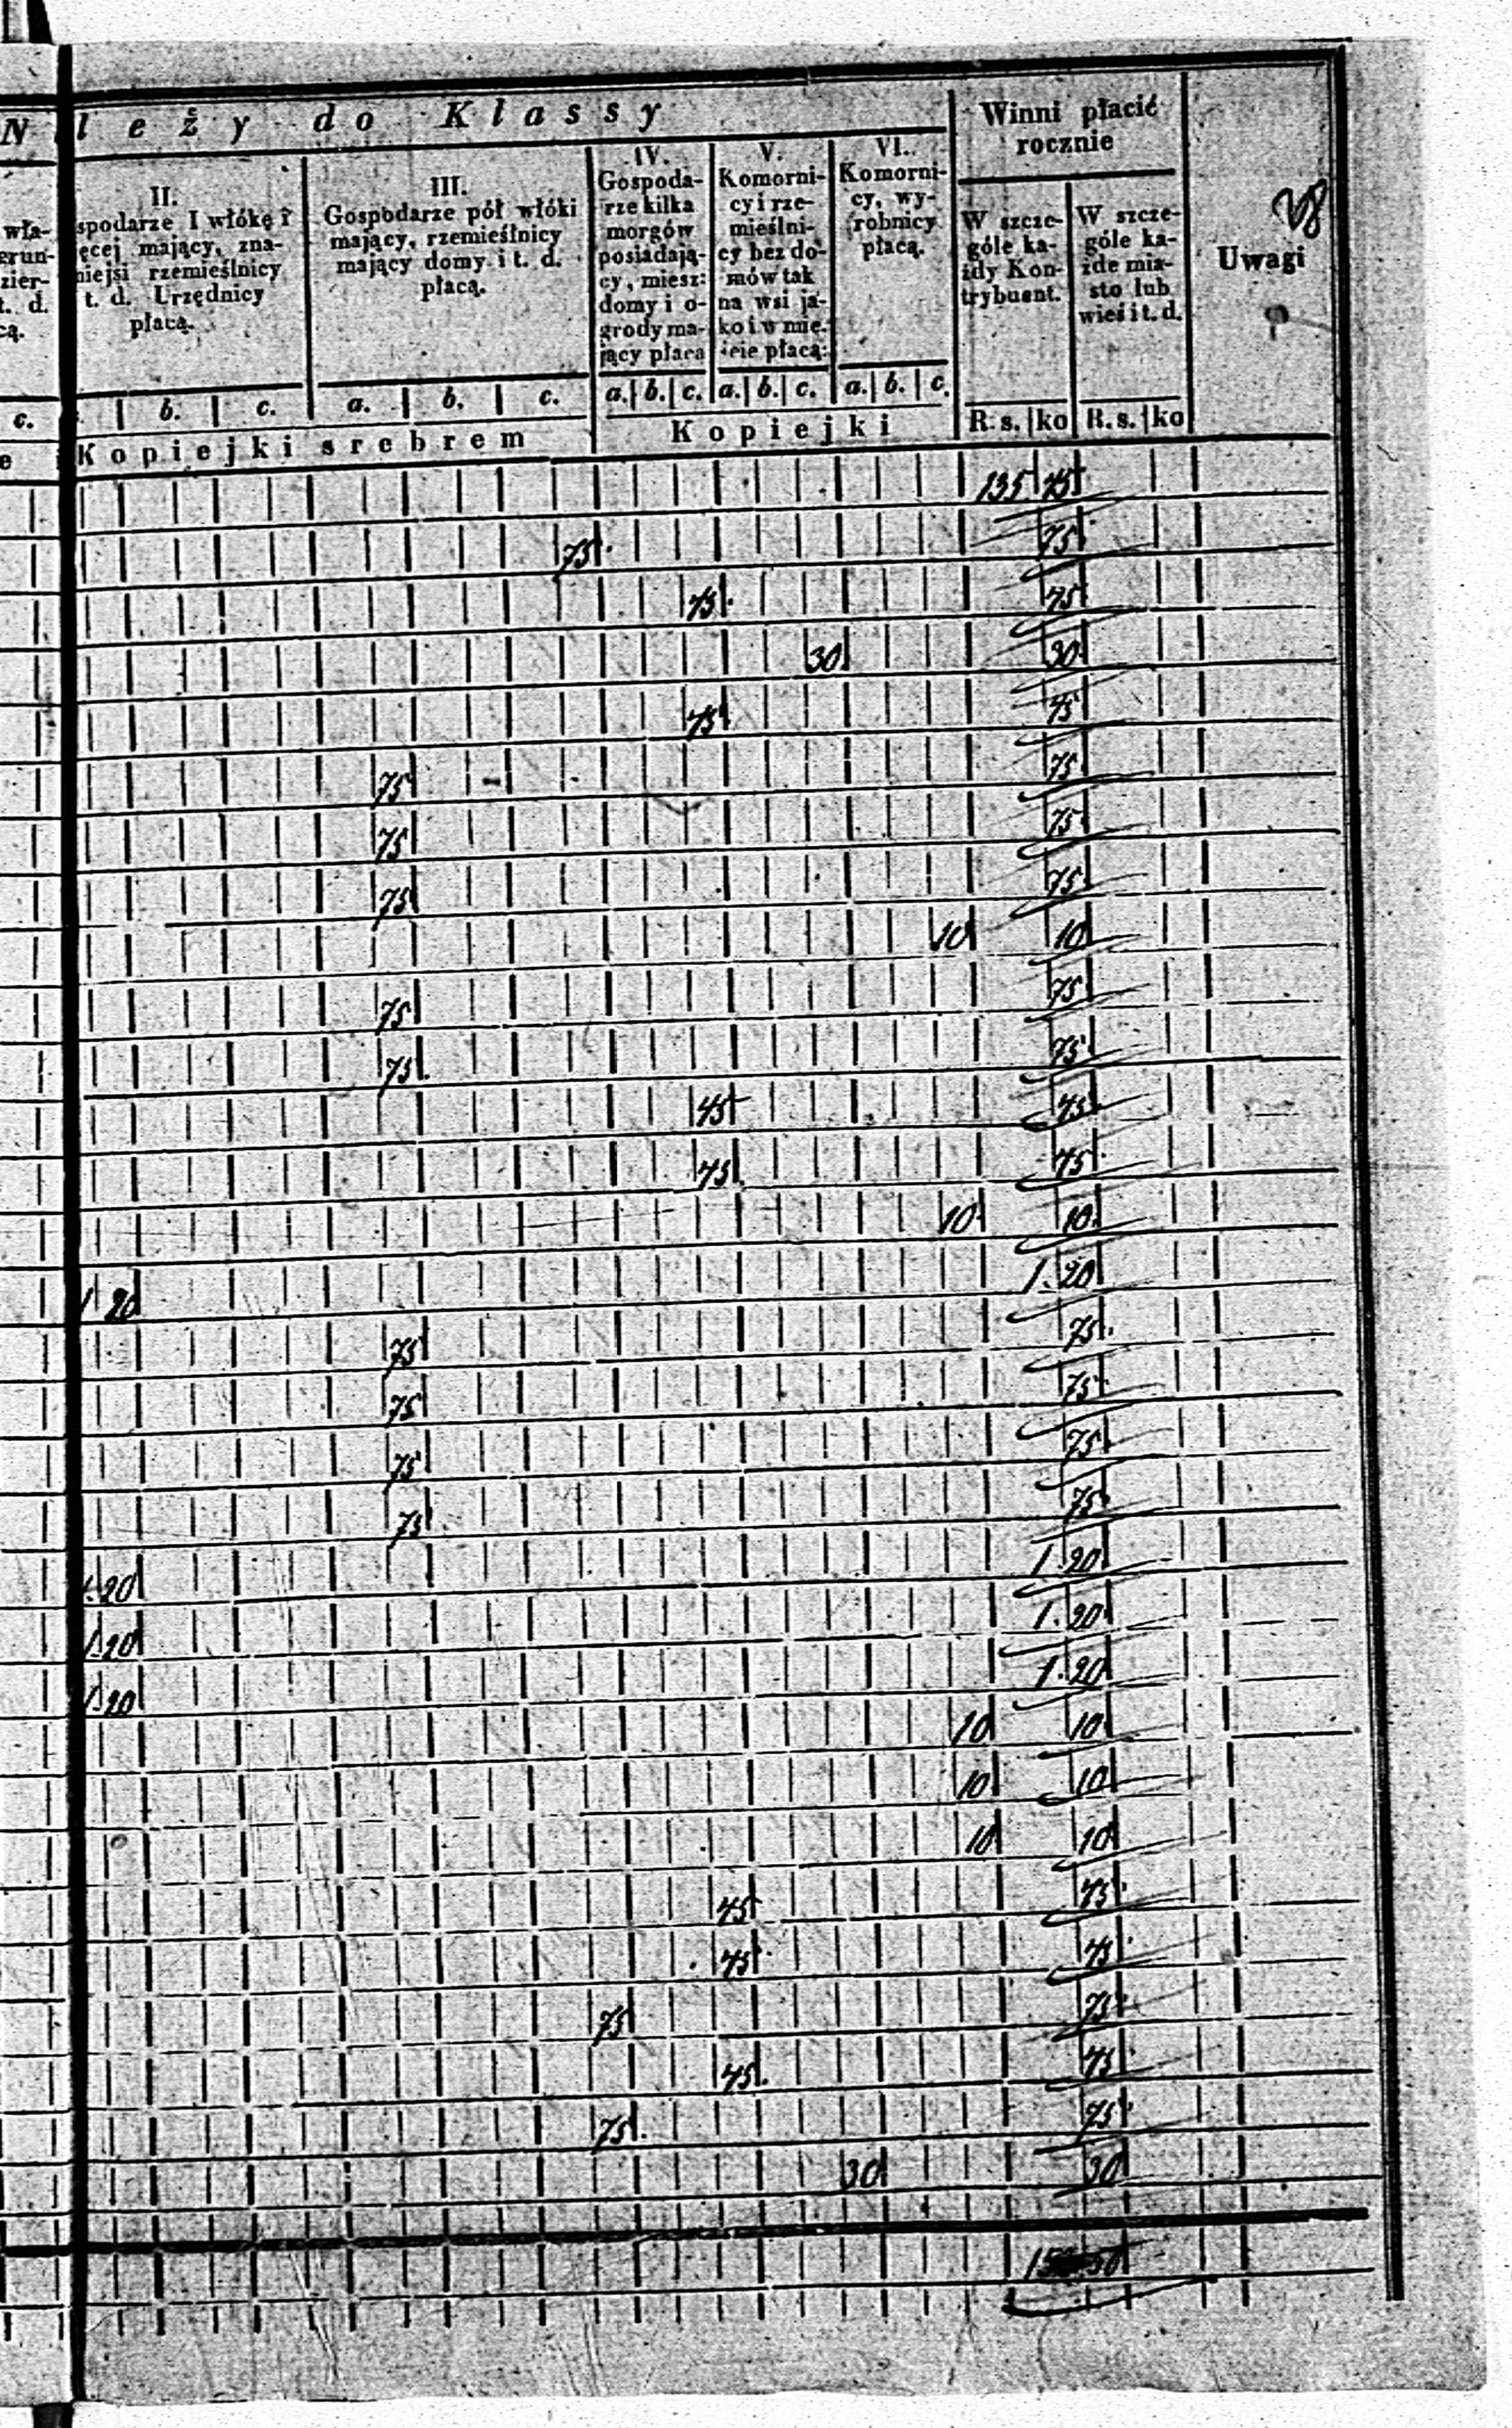 N leży do Klassy
Winni płacić
rocznie
Uwagi
wła-
grun-
zier-
t. d.
cą.
II.
spodarze I włókę i
ęcej mający, zna-
niejsi rzemieślnicy
t. d. Urzędnicy
płacą.
III.
Gospodarze pół włóki
mający, rzemieślnicy
mający domy i t. d.
płacą.
IV.
Gospoda-
rze kilka
morgów
posiadają-
cy, miesz:
domy i o-
grody ma-
jący płaca
V.
Komorni-
cy i rze-
mieślni-
cy bez do-
mów tak
na wsi ja-
ko i w mie-
ście płacą:
VI.
Komorni-
cy, wy-
robnicy
płacą.
W szcze-
góle ka-
żdy Kon-
trybuent.
W szcze-
góle ka-
żde mia-
sto lub
wieś i t. d.
c. b. c. a. b. c. a. b. c. a. b. c. a. b. c. R. s. ko R. s. ko
e Kopiejki srebrem Kopiejki
135 75
75 75
75 75
30 30
75 75
75 75
75 75
75 75
10 10
75 75
75 75
45 45
75 75
10 10
1 20 1.20
75 75
75 75
75 75
75 75
1.20 1.20
1.20 1.20
1.20 1.20
10 10
10 10
10 10
45 45
45 45
75 75
45 45
75 75
30 30